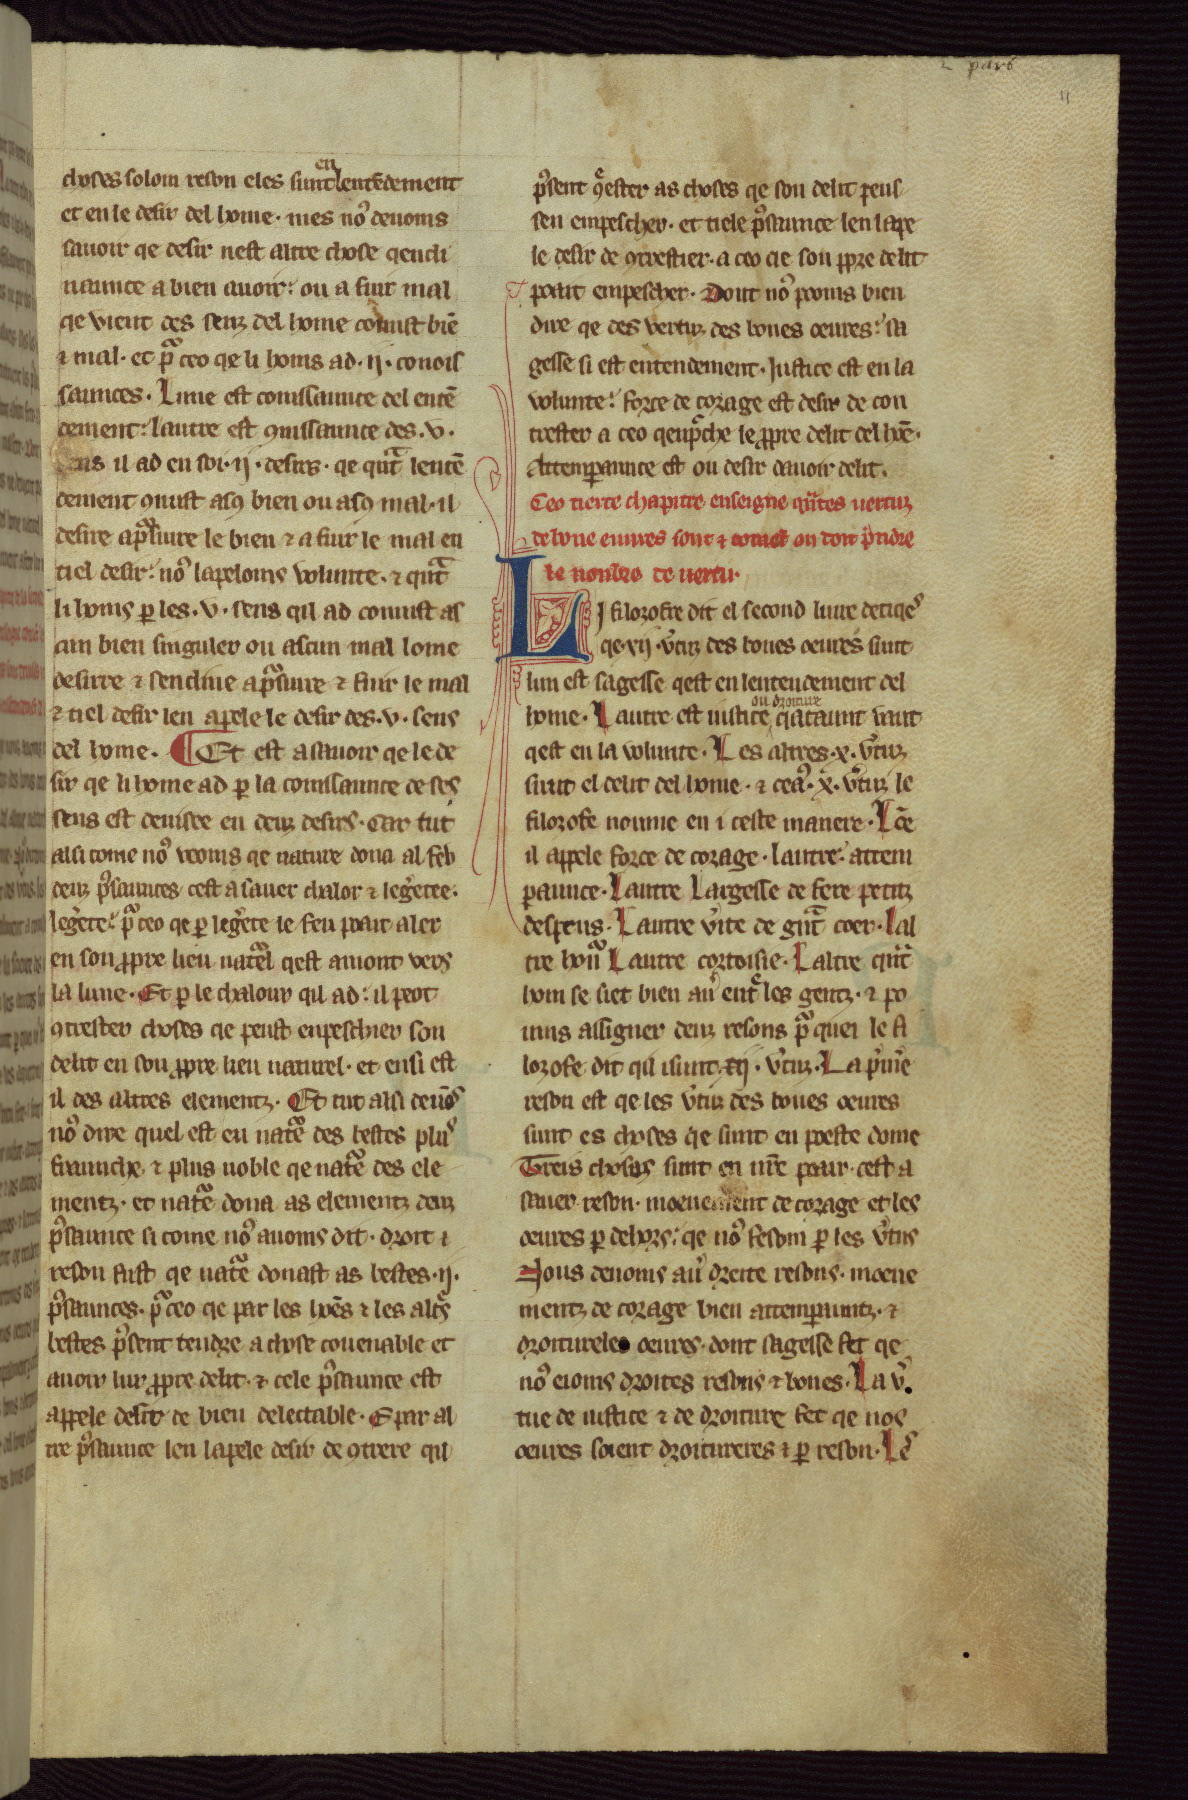 2 pars
11
choses solom reson eles sunt en lentẽdement
et en le desir del home · mes noꝰ devoms
savoir qe desir nest altre chose qencli
naunce a bien avoir : ou a fuir mal
qe vient des senz del home conust biẽ
⁊ mal · et pᷓ ceo qe li homs ad · ij · conois
saunces · Lune est conissaunce del entẽ
dement : lautre est ꝯnissaunce des · v ·
sens il ad en soi · ij · desirs · qe qᷓnt lentẽ
dement ꝯnust asꝯ bien ou asꝯ mal · il
desire apᷓs sivre le bien ⁊ a fuir le mal en
tiel desir : noꝰ lapeloms volunte · ⁊ qᷓnt
li homs ꝑ les · v · sens qil ad conust as
cun bien singuler ou ascun mal lome
desirre ⁊ sencline a pᷓsivre ⁊ fuir le mal
⁊ tiel desir len apele le desir des · v · sens
del home · ¶ Et est a savoir qe le de
sir qe li home ad ꝑ la conissaunce de ses
sens est devisee en deuz desirs · Car tut
alsi come noꝰ veoms qe nature dona al feu
deuz pᷤsaunces cest a saver chalor ⁊ leg̃ete ·
leg̃ete : pᷓ ceo qe ꝑ leg̃ete le feu poait aler
en son ꝓpre lieu natᷓel qest amont vers
la lune · Et ꝑ le chalour qil ad : il peot
ꝯtrester choses qe peust enpeschier son
delit en son ꝓpre lieu naturel · et ensi est
il des altres elementz · Et tut alsi devõs
noꝰ dire quel est en natᷓe des bestes plus
fraunche ⁊ plus noble qe natᷓe des ele
mentz · et natᷓe dona as elementz deuz
pᷤsaunce si come noꝰ avoms dit · droit ⁊
reson fust qe natᷓe donast as bestes · ij ·
pᷤsaunces · pᷓ ceo qe par les hoẽs ⁊ les alts̃
bestes pᷤsent tendre a chose covenable et
avoir lur ꝓpre delit · ⁊ cele pᷤsaunce est
appele delit de bien delectable · E par al
tre pᷤsaunce len lapele desir de ꝯtrere qil
pᷤsent ꝯᷓester as choses qe son delit peus
sen empescher · et tiele pᷤsaunce len lape
le desir de ꝯtrestier · a ceo qe son ꝓpre delit
poait empescher · Dont noꝰ pooms bien
dire qe des vertuz des bones oevres : sa
gesse si est entendement · Justice est en la
volunte : force de corage est desir de con
trester a ceo qenpᷓche le ꝓpre delit del hoẽ ·
Attempraunce est ou desir davoir delit ·
Ceo tierte chapitre enseigne qᷓntes vertuz
de bone euvres sont ⁊ coment on doit pᷤndre
le nombre de vertu ·
Li filozofre dit el second livre detiqeˢ
qe · xij · vᷤtuz des bones oevres sunt
lun est sagesse qest en lentendement del
home · Lautre est iustice ou droiture qataunt vaut
qest en la volunte · Les altres · x · vᷤtuz
sunt el delit del home · ⁊ ceaˢ · x · vᷤtuz le
filozofe nonme en i ceste manere · Lõe
il appele force de corage · lautre : attem
paunce · Lautre Largesse de fere petitz
despens · Lautre vᷤite de gñt coer · Lal
tre honᷣ Lautre cortoisie · Laltre qᷓnt
hom se siet bien avᷤ entᷓ les gentz · ⁊ po
ums assigner deuz resons pᷓ quei le fi
lozofe dit qil i sunt xij · vᷤtuz · La pᷤmẽ
reson est qe les vᷤtuz des bones oevres
sunt es choses qe sunt en poeste dome
Treis choses sunt en nr̃e poair · cest a
saver reson · moevement de corage et les
oevres ꝑ dehors : qe noꝰ fesom ꝑ les vᷤtus
Nous devoms avᷤ dreite resons · moeve
mentz de corage bien attempraunz · ⁊
droitureles oevres · dont sagesse fet qe
noꝰ eioms droites resons ⁊ bones · La vᷤ
tue de iustice ⁊ de droiture fet qe nos
oevres soient droitureres ⁊ ꝑ reson · Leˢ